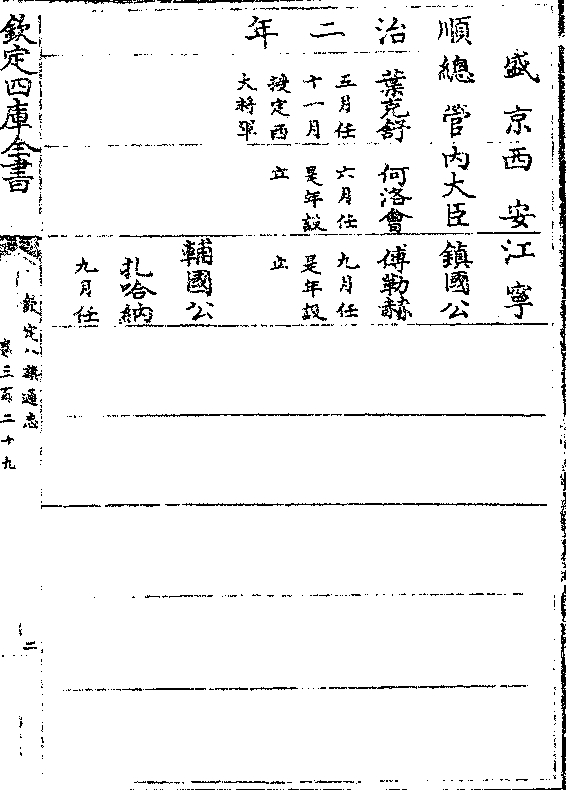 盛京 西安 江寧
順 總管内大臣 鎮國公
治 葉克舒 何洛會 傅勒赫
五月任 六月任 九月任
二 十一月 是年設 是年設
授定西 立 立
年 大將軍
輔國公
扎哈納
九月任
欽定四庫全書
欽定八旗通志
卷三百二十九
二